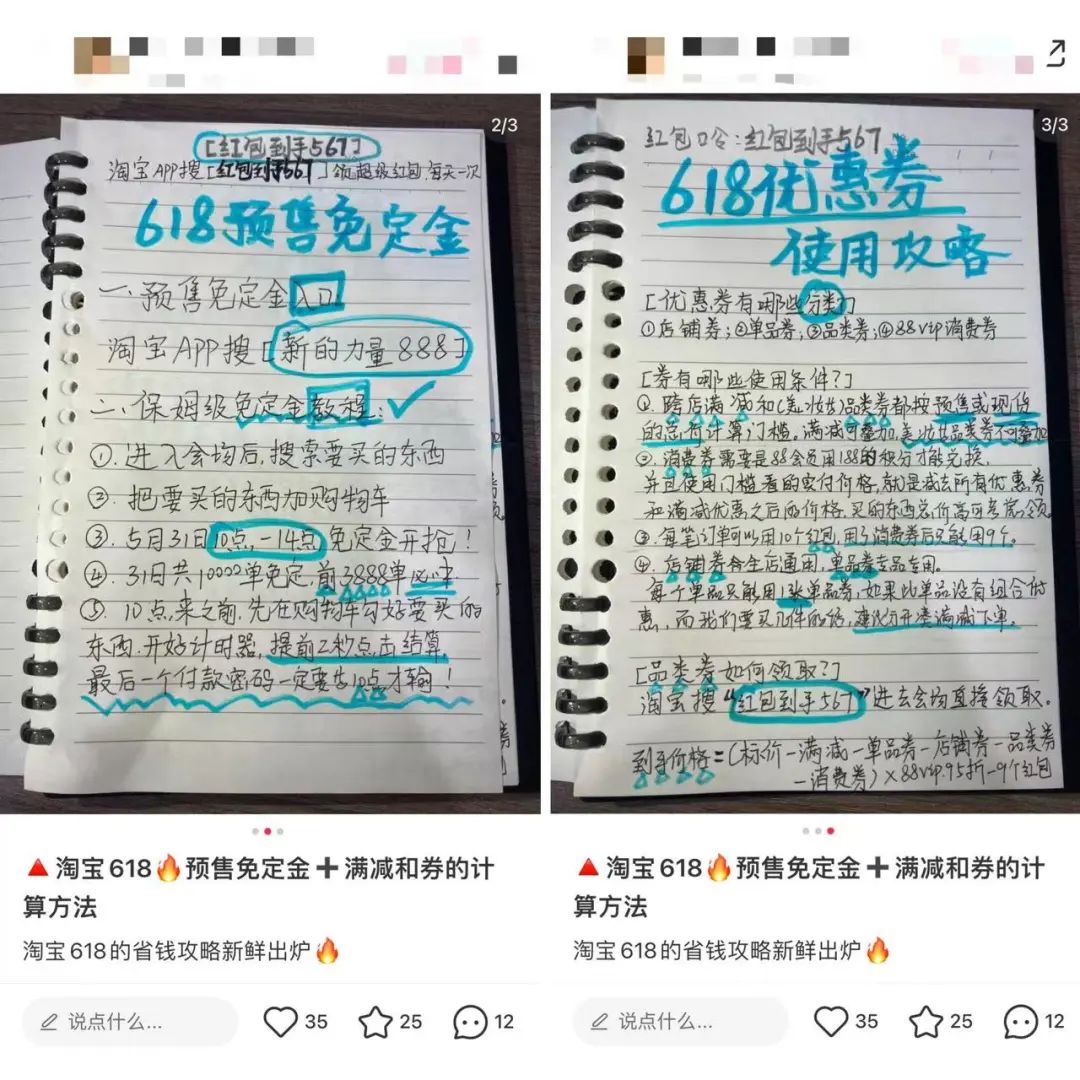 2/3
[红包到手567]
淘宝APP搜[红包到手567]领超级红包,每天一次
618预售免定金
一.预售免定金入口
淘宝APP搜[新的力量888]
二.保姆级免定金教程:
①.进入会场后,搜索要买的东西
②.把要买的东西加购物车
③.5月31日10点-14点免定金开抢!
④.31日共10002单免定,前3888单必中
⑤.10点来之前,先在购物车勾好要买的
东西.开好计时器,提前2秒点击结算,
最后一个付款密码一定要卡10点才输!
🔺淘宝618🔥预售免定金➕满减和券的计
算方法
淘宝618的省钱攻略新鲜出炉🔥
说点什么...
35
25
12
3/3
红包口令:红包到手567
618优惠券
使用攻略
[优惠券有哪些分类]
①店铺券;②单品券;③品类券;④88vip消费券
[券有哪些使用条件?]
①.跨店满减和(美妆)品类券都按预售或现货
的总价计算门槛。满减可叠加,美妆品类券不可叠加
②.消费券需要是88会员用188的积分才能兑换,
并且使用门槛看的实付价格,就是减去所有优惠券
和满减优惠之后的价格,买的东西总价高可考虑领
③.每笔订单可以用10个红包,用了消费券后只能用9个。
④.店铺券全店通用,单品券专品专用。
每个单品只能用1张单品券,如果此单品没有组合优
惠,而我们要买几件的话,建议分开凑满减下单。
[品类券如何领取?]
淘宝搜"红包到手567"进去会场直接领取。
到手价格=(标价-满减-单品券-店铺券-品类券
-消费券)×88vip.95折-9个红包
🔺淘宝618🔥预售免定金➕满减和券的计
算方法
淘宝618的省钱攻略新鲜出炉🔥
说点什么...
35
25
12